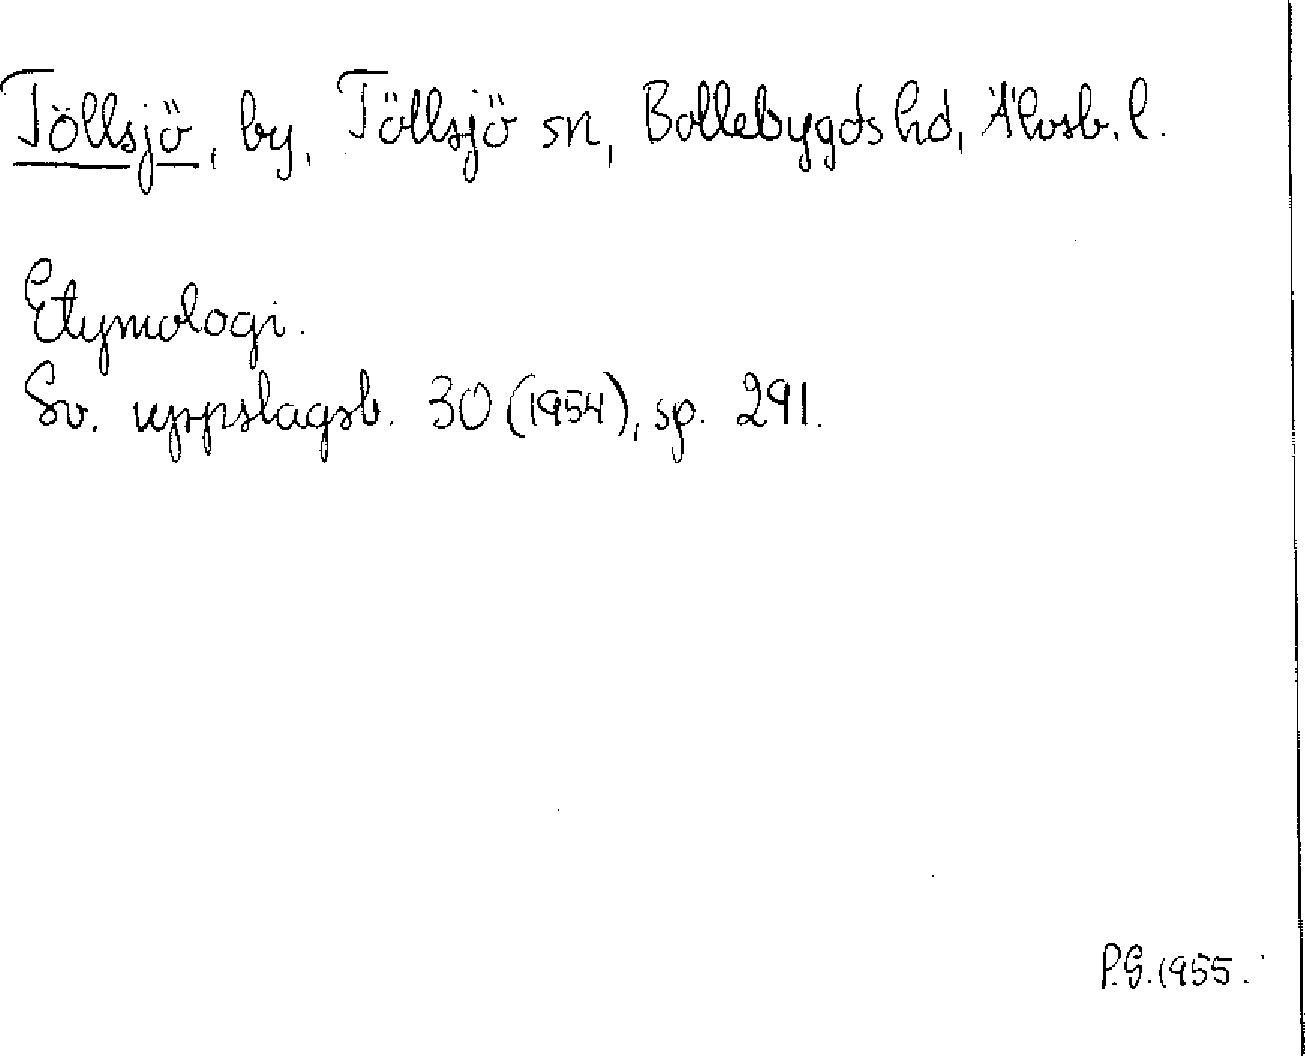 Töllsjö, by, Töllsjö sn, Bollebygds hd, Älvsb. l.
Etymologi.
Sv. uppslagsb. 30 (1954), sp. 291.
P.G. 1955.